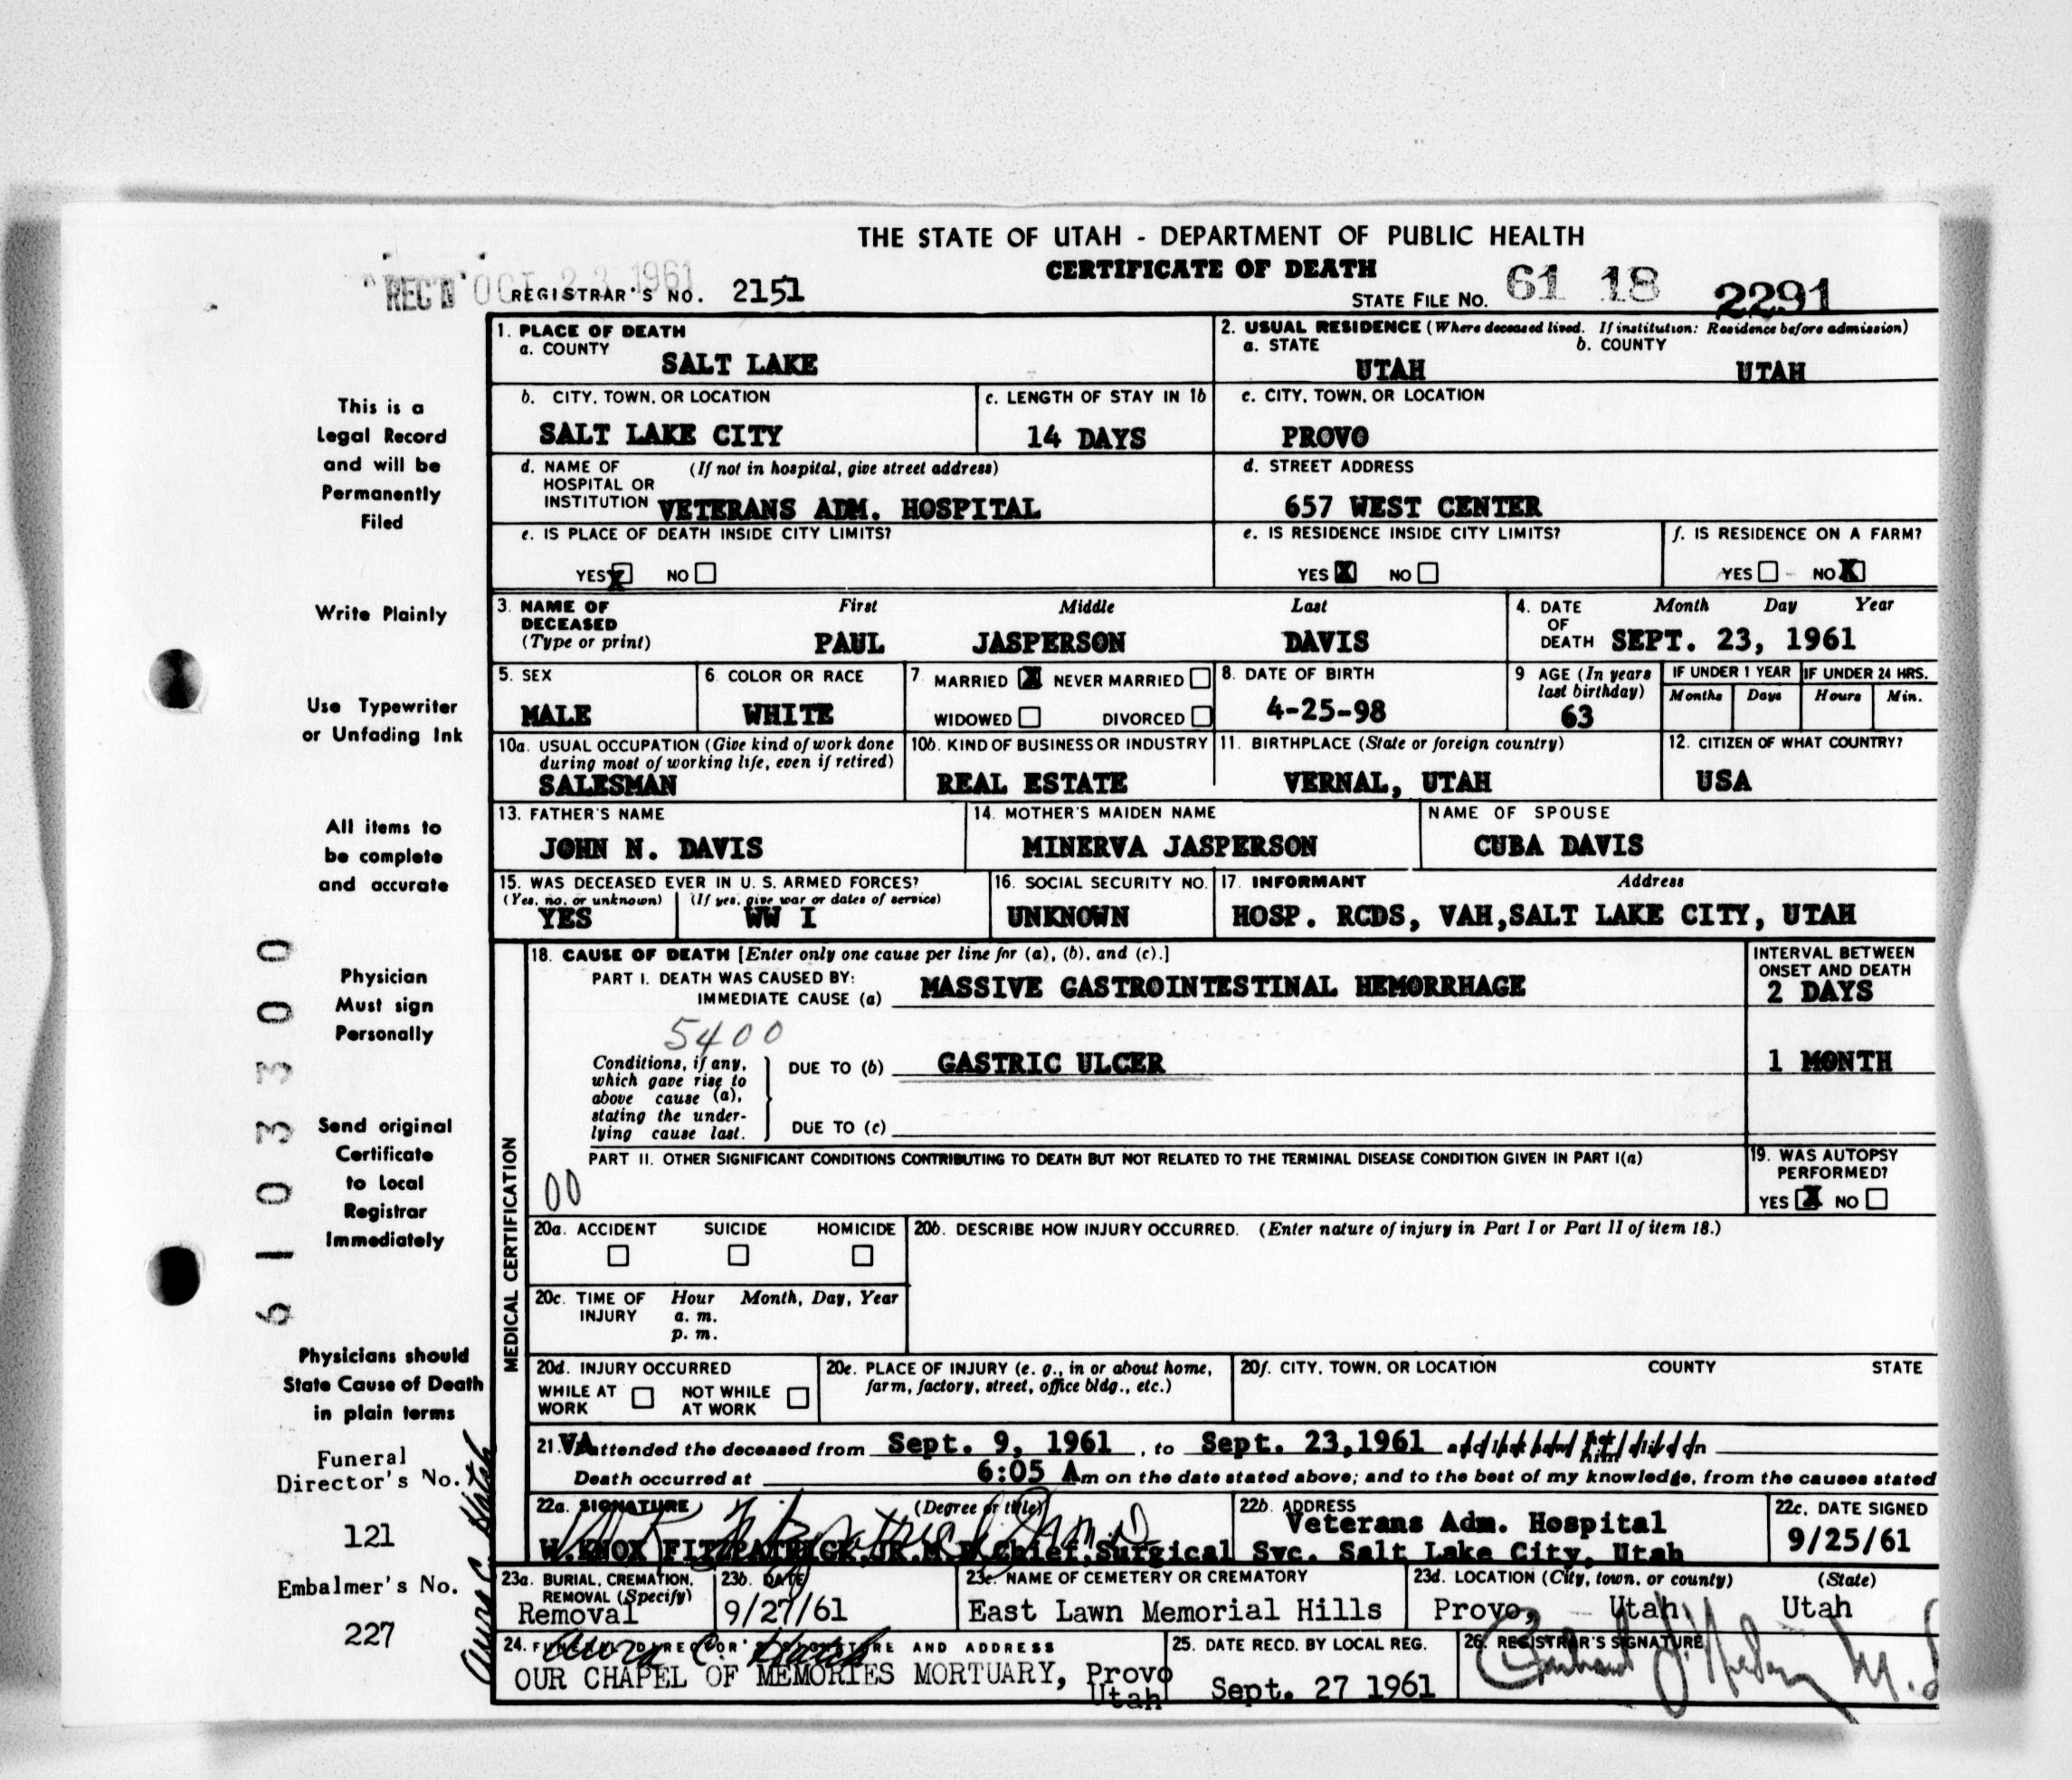 THE STATE OF UTAH - DEPARTMENT OF PUBLIC HEALTH
CERTIFICATE OF DEATH
REC'D OCT 23 1961
REGISTRAR'S NO. 2151
STATE FILE NO. 61 18 2291
1. PLACE OF DEATH
a. COUNTY
SALT LAKE
2. USUAL RESIDENCE (Where deceased lived. If institution: Residence before admission)
a. STATE b. COUNTY
UTAH UTAH
b. CITY, TOWN, OR LOCATION
SALT LAKE CITY
c. LENGTH OF STAY IN 1b
14 DAYS
c. CITY, TOWN, OR LOCATION
PROVO
d. NAME OF (If not in hospital, give street address)
HOSPITAL OR
INSTITUTION VETERANS ADM. HOSPITAL
d. STREET ADDRESS
657 WEST CENTER
e. IS PLACE OF DEATH INSIDE CITY LIMITS?
YES X NO
e. IS RESIDENCE INSIDE CITY LIMITS?
YES X NO
f. IS RESIDENCE ON A FARM?
YES NO X
3. NAME OF DECEASED First Middle Last
(Type or print) PAUL JASPERSON DAVIS
4. DATE OF DEATH Month Day Year
SEPT. 23, 1961
5. SEX
MALE
6. COLOR OR RACE
WHITE
7. MARRIED X NEVER MARRIED
WIDOWED DIVORCED
8. DATE OF BIRTH
4-25-98
9 AGE (In years last birthday)
63
IF UNDER 1 YEAR IF UNDER 24 HRS.
Months Days Hours Min.
10a. USUAL OCCUPATION (Give kind of work done
during most of working life, even if retired)
SALESMAN
10b. KIND OF BUSINESS OR INDUSTRY
REAL ESTATE
11. BIRTHPLACE (State or foreign country)
VERNAL, UTAH
12. CITIZEN OF WHAT COUNTRY?
USA
13. FATHER'S NAME
JOHN N. DAVIS
14. MOTHER'S MAIDEN NAME
MINERVA JASPERSON
NAME OF SPOUSE
CUBA DAVIS
15. WAS DECEASED EVER IN U. S. ARMED FORCES?
(Yes, no, or unknown) (If yes, give war or dates of service)
YES WW I
16. SOCIAL SECURITY NO.
UNKNOWN
17. INFORMANT Address
HOSP. RCDS, VAH,SALT LAKE CITY, UTAH
MEDICAL CERTIFICATION
18. CAUSE OF DEATH [Enter only one cause per line for (a), (b), and (c).]
PART I. DEATH WAS CAUSED BY:
IMMEDIATE CAUSE (a) MASSIVE GASTROINTESTINAL HEMORRHAGE
INTERVAL BETWEEN
ONSET AND DEATH
2 DAYS
5400
Conditions, if any,
which gave rise to
above cause (a),
stating the under-
lying cause last.
DUE TO (b) GASTRIC ULCER
1 MONTH
DUE TO (c)
PART II. OTHER SIGNIFICANT CONDITIONS CONTRIBUTING TO DEATH BUT NOT RELATED TO THE TERMINAL DISEASE CONDITION GIVEN IN PART I(a)
00
19. WAS AUTOPSY
PERFORMED?
YES X NO
20a. ACCIDENT SUICIDE HOMICIDE
20b. DESCRIBE HOW INJURY OCCURRED. (Enter nature of injury in Part I or Part II of item 18.)
20c. TIME OF INJURY Hour Month, Day, Year
a. m.
p. m.
20d. INJURY OCCURRED
WHILE AT WORK NOT WHILE AT WORK
20e. PLACE OF INJURY (e. g., in or about home,
farm, factory, street, office bldg., etc.)
20f. CITY, TOWN, OR LOCATION COUNTY STATE
21. VA attended the deceased from Sept. 9, 1961, to Sept. 23,1961
Death occurred at 6:05 Am on the date stated above; and to the best of my knowledge, from the causes stated
22a. SIGNATURE (Degree or title)
W.KNOX FITZPATRICK,JR.M.D.Chief,Surgical Svc.
22b. ADDRESS
Veterans Adm. Hospital
Salt Lake City, Utah
22c. DATE SIGNED
9/25/61
23a. BURIAL, CREMATION,
REMOVAL (Specify)
Removal
23b. DATE
9/27/61
23c. NAME OF CEMETERY OR CREMATORY
East Lawn Memorial Hills
23d. LOCATION (City, town, or county) (State)
Provo, Utah Utah
24. FUNERAL DIRECTOR'S SIGNATURE AND ADDRESS
OUR CHAPEL OF MEMORIES MORTUARY, Provo
Utah
25. DATE RECD. BY LOCAL REG.
Sept. 27 1961
26. REGISTRAR'S SIGNATURE
This is a
Legal Record
and will be
Permanently
Filed
Write Plainly
Use Typewriter
or Unfading Ink
All items to
be complete
and accurate
Physician
Must sign
Personally
Send original
Certificate
to Local
Registrar
Immediately
Physicians should
State Cause of Death
in plain terms
Funeral
Director's No.
121
Embalmer's No.
227
61033300